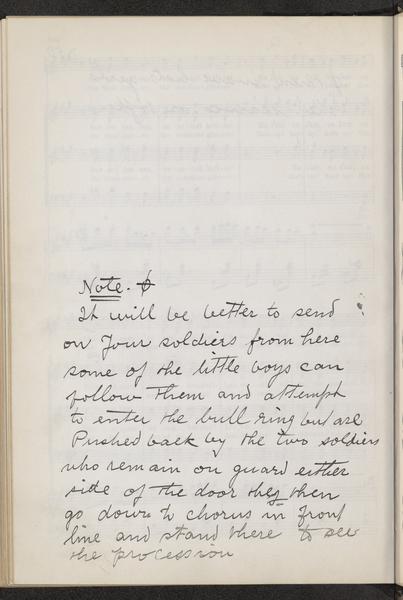 Note. ϕ
It will be better to send
on four soldiers from here
some of the little boys can
follow them and attempt
to enter the bull ring but are
Pushed back by the two soldiers
who remain on guard either
side of the door they then
go down to chorus in front
line and stand there to see
the procession